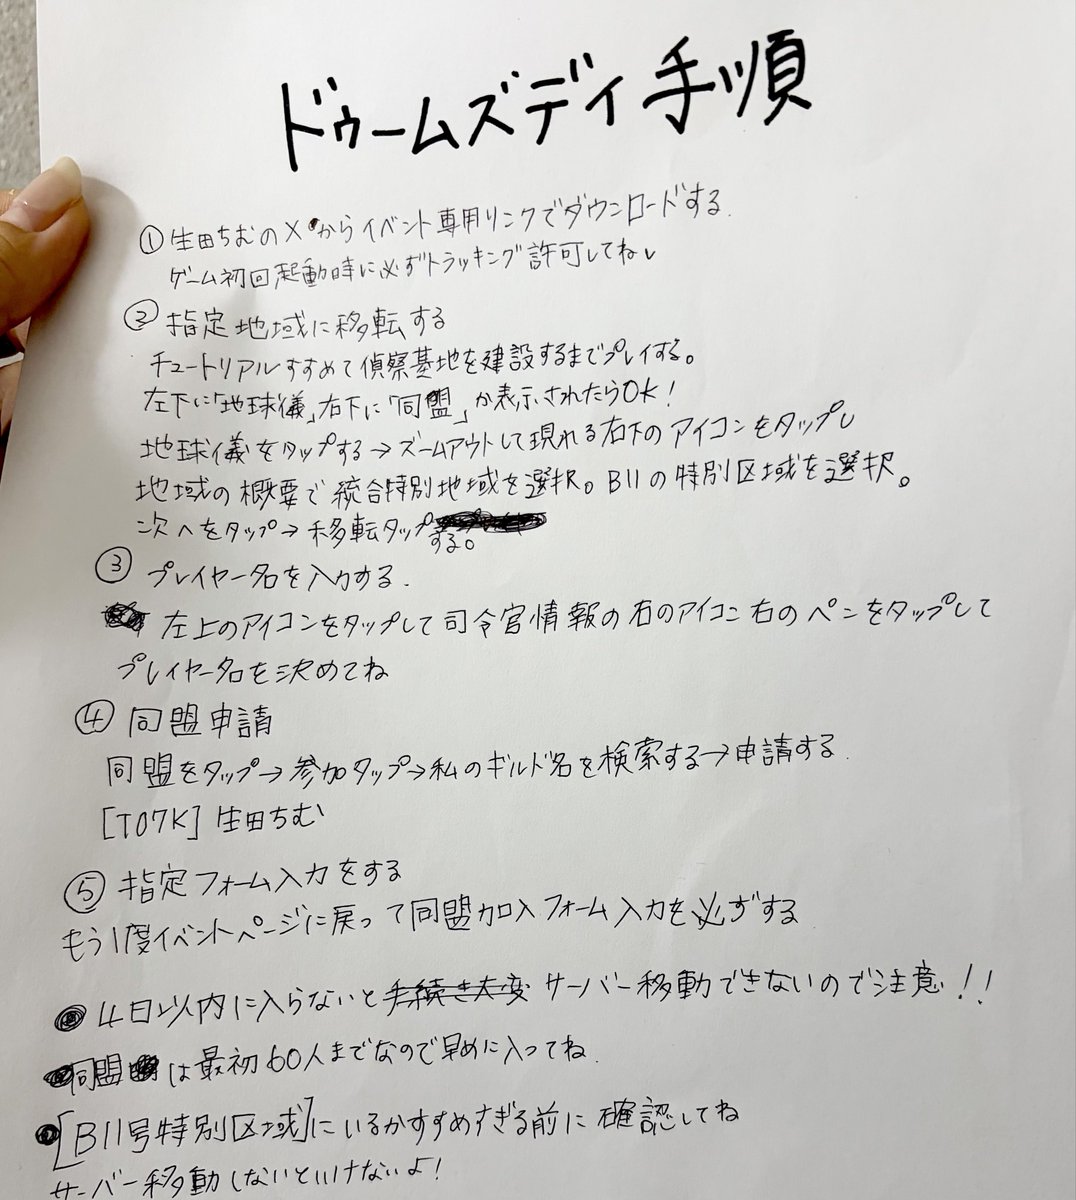 ドゥームズデイ手順
①生田ちむのXからイベント専用リンクでダウンロードする.
ゲーム初回起動時に必ずトラッキング許可してねし
②指定地域に移転する
チュートリアルすすめて偵察基地を建設するまでプレイする。
左下に「地球儀」右下に「同盟」が表示されたらOK!
地球儀をタップする→ズームアウトして現れる右下のアイコンをタップし
地域の概要で統合特別地域を選択。B11の特別区域を選択。
次へをタップ→移転タップする。
③プレイヤー名を入力する.
左上のアイコンをタップして司令官情報の右のアイコン右のペンをタップして
プレイヤー名を決めてね
④同盟申請
同盟をタップ→参加タップ→私のギルド名を検索する→申請する.
[T07K]生田ちむ
⑤指定フォーム入力をする
もう1度イベントページに戻って同盟加入フォーム入力を必ずする
●4日以内に入らないと手続き大変サーバー移動できないので注意!!
同盟は最初60人までなので早めに入ってね.
●[B11号特別区域]にいるかすすめすぎる前に確認してね
サーバー移動しないといけないよ!